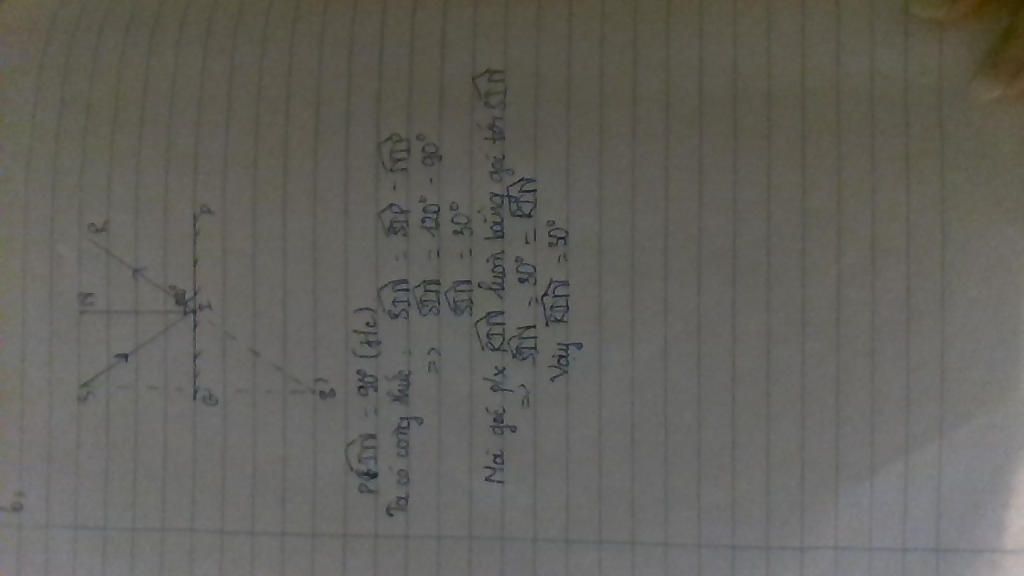 b,
S N R
G I P
S'
PIN = 90° (g/c)
Ta có công thức: SIN = SIP - NIP
=> SIN = 120° - 90°
SIN = 30°
Mà góc p/x RIN luôn bằng góc tới SIN
=> SIN = 30° = RIN
Vậy RIN = 30°